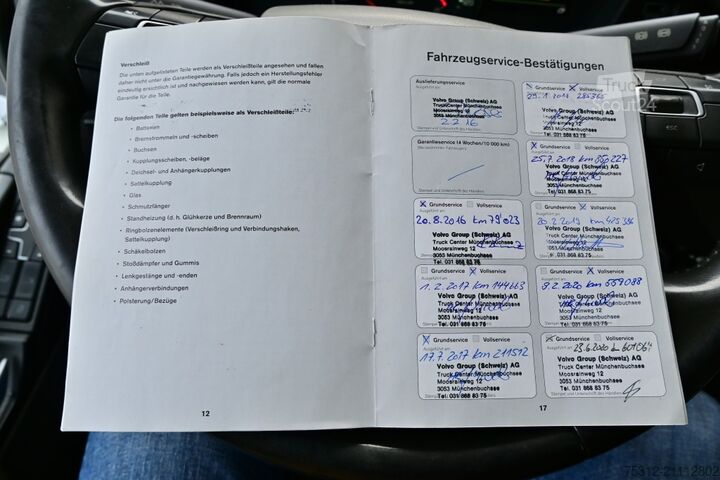 Verschleiß
Die unten aufgelisteten Teile werden als Verschleißteile angesehen und fallen
daher nicht unter die Garantiegewährung. Falls jedoch ein Herstellungsfehler
eindeutig ersichtlich ist und nachgewiesen werden kann, gilt die normale
Garantie für die Teile.
Die folgenden Teile gelten beispielsweise als Verschleißteile:
• Batterien
• Bremstrommeln und -scheiben
• Buchsen
• Kupplungsscheiben, -beläge
• Deichsel- und Anhängerkupplungen
• Sattelkupplung
• Glas
• Schmutzfänger
• Standheizung (d. h. Glühkerze und Brennraum)
• Ringbolzenelemente (Verschleißring und Verbindungshaken,
Sattelkupplung)
• Schäkelbolzen
• Stoßdämpfer und Gummis
• Lenkgestänge und -enden
• Anhängerverbindungen
• Polsterung/Bezüge
12
Fahrzeugservice-Bestätigungen
Auslieferungsservice
Ausgeführt am:
Volvo Group (Schweiz) AG
Truck Center Münchenbuchsee
3053 Münchenbuchsee
Stempel und Unterschrift des Händlers
Garantieservice (4 Wochen/10 000 km)
Stempel und Unterschrift des Händlers
Grundservice Vollservice
20.8.2016 km 79'023
Volvo Group (Schweiz) AG
Truck Center Münchenbuchsee
Moosrainweg 12
3053 Münchenbuchsee
Tel. 031 868 83 75
Grundservice X Vollservice
1.2.2017 km 144663
Volvo Group (Schweiz) AG
Truck Center Münchenbuchsee
Moosrainweg 12
3053 Münchenbuchsee
Tel. 031 868 83 75
X Grundservice Vollservice
17.7.2017 km 211512
Volvo Group (Schweiz) AG
Truck Center Münchenbuchsee
Moosrainweg 12
3053 Münchenbuchsee
Tel. 031 868 83 75
Grundservice X Vollservice
Volvo Group (Schweiz) AG
Truck Center Münchenbuchsee
Moosrainweg 12
3053 Münchenbuchsee
X Grundservice Vollservice
25.7.2018 km 350227
Volvo Group (Schweiz) AG
Truck Center Münchenbuchsee
Moosrainweg 12
3053 Münchenbuchsee
Tel. 031 868 83 75
Grundservice X Vollservice
20.2.2019 km 425336
Volvo Group (Schweiz) AG
Truck Center Münchenbuchsee
Moosrainweg 12
3053 Münchenbuchsee
Tel. 031 868 83 75
Grundservice X Vollservice
8.2.2020 km 559088
Volvo Group (Schweiz) AG
Truck Center Münchenbuchsee
Moosrainweg 12
3053 Münchenbuchsee
Tel. 031 868 83 75
X Grundservice Vollservice
23.6.2020
Volvo Group (Schweiz) AG
Truck Center Münchenbuchsee
Moosrainweg 12
3053 Münchenbuchsee
Tel. 031 868 83 75
Stempel und Unterschrift des Händlers
17
Truck
Scout24
75312-21112802